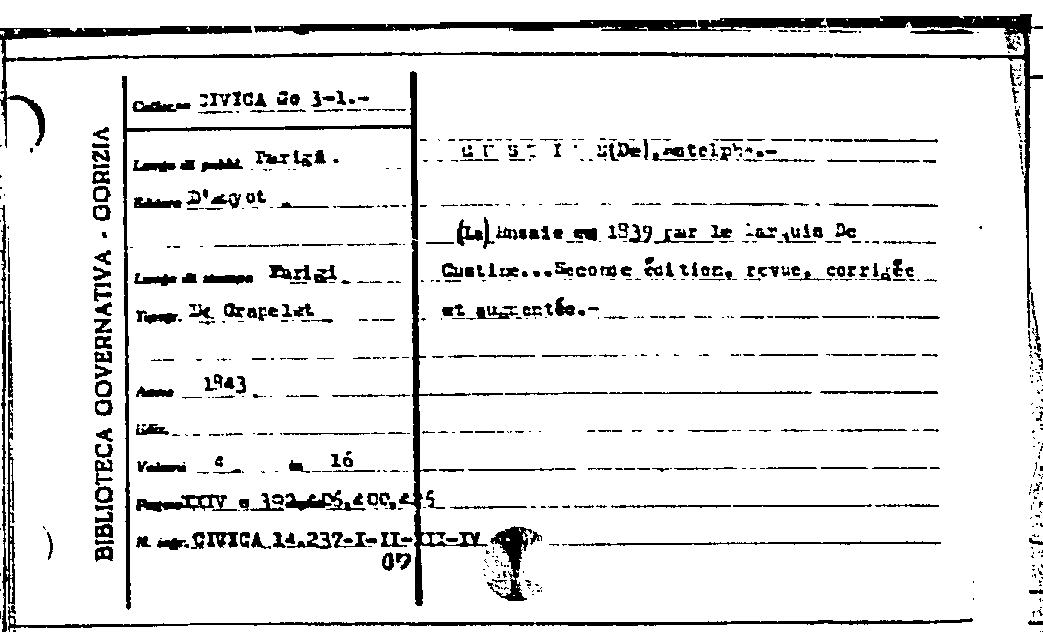 BIBLIOTECA GOVERNATIVA - GORIZIA
Colloc.ne CIVICA Go 3-1.-
Luogo di pubbl. Parigi.
Editore D'Amyot .
Luogo di stampa Parigi.
Tipogr. De Crapelet
Anno 1843
Ediz.
Volumi 4 in 16
Pagine XXIV e 392,406,400,
N. ingr. CIVICA 14.237-I-II-III-IV
07
C U S T I N E(De),
(La) Russie en 1839 par le Marquis De
Custine...Seconde édition, revue, corrigée
et augmentée.-